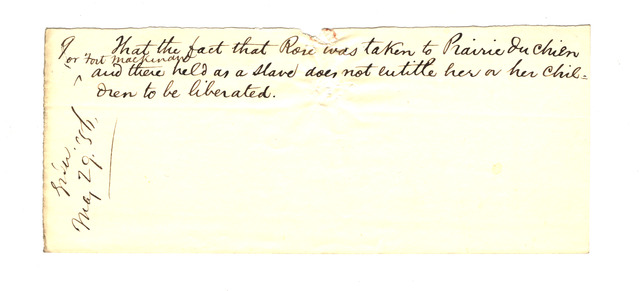 9 That the fact that Rose was taken to Prairie Du Chien
or Fort Mackinaw
and there held as a slave does not entitle her or her Chil-
dren to be liberated.
Given.
May 29. 56,